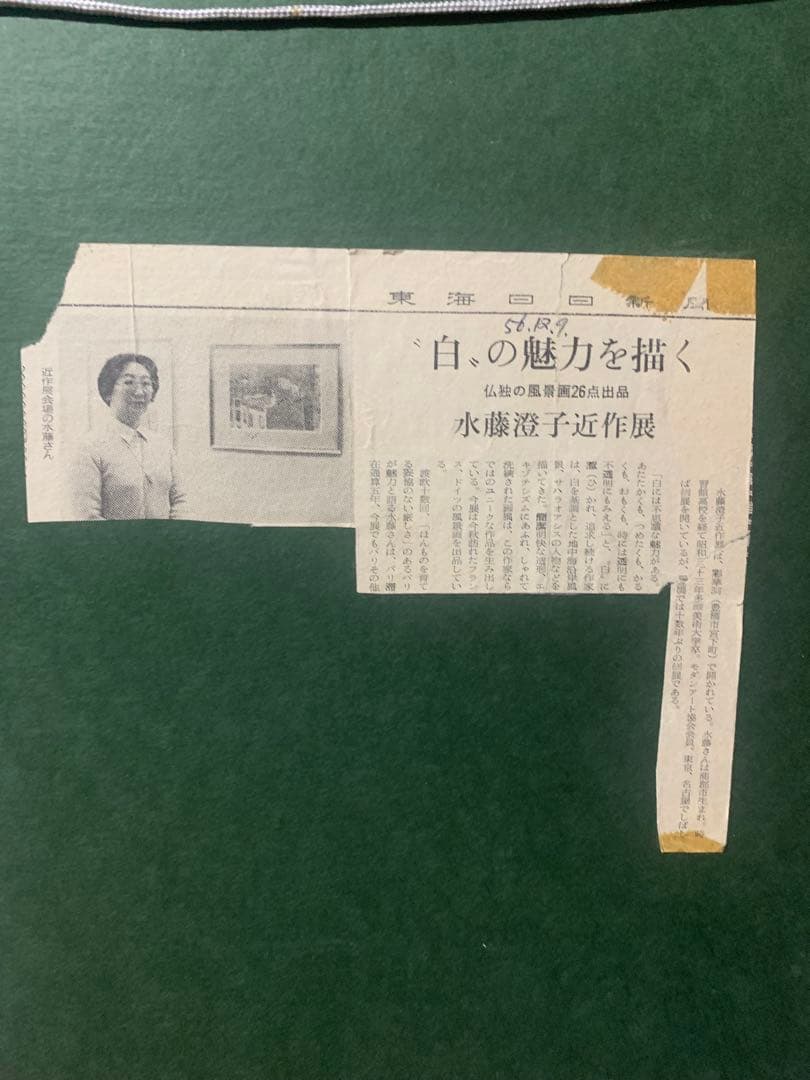 東海日日新
56.12.9.
"白"の魅力を描く
仏独の風景画26点出品
水藤澄子近作展
水藤澄子近作展は、
(豊橋市宮下町)で開かれている。水藤さんは蒲郡市生まれ。時
習館高校を経て昭和三十三年多摩美術大学卒。モダンアート協会会員。東京、名古屋でしば
ば個展を開いているが、豊橋では十数年ぶりの個展である。
「白には不思議な魅力がある。
あたたかくも、つめたくも、かる
くも、おもくも、時には透明にも
不透明にもみえる」と、"白"に
(ひ)かれ、追求し続ける作家
は、白を基調とした地中海沿岸風
景、サハラオアシスの人物などを
描いてきた。簡潔明快な造形、エ
キゾチシズムにあふれ、しゃれて
洗練された画風は、この作家なら
ではのユニークな作品を生み出し
ている。今展は今秋訪れたフラン
ス、ドイツの風景画を出品してい
る。
渡欧十数回、「ほんものを育て
る妥協のない厳しさ」のあるパリ
が魅力と語る水藤さんは、パリ滞
在通算五年。今展でもパリその他
近作展会場の水藤さん